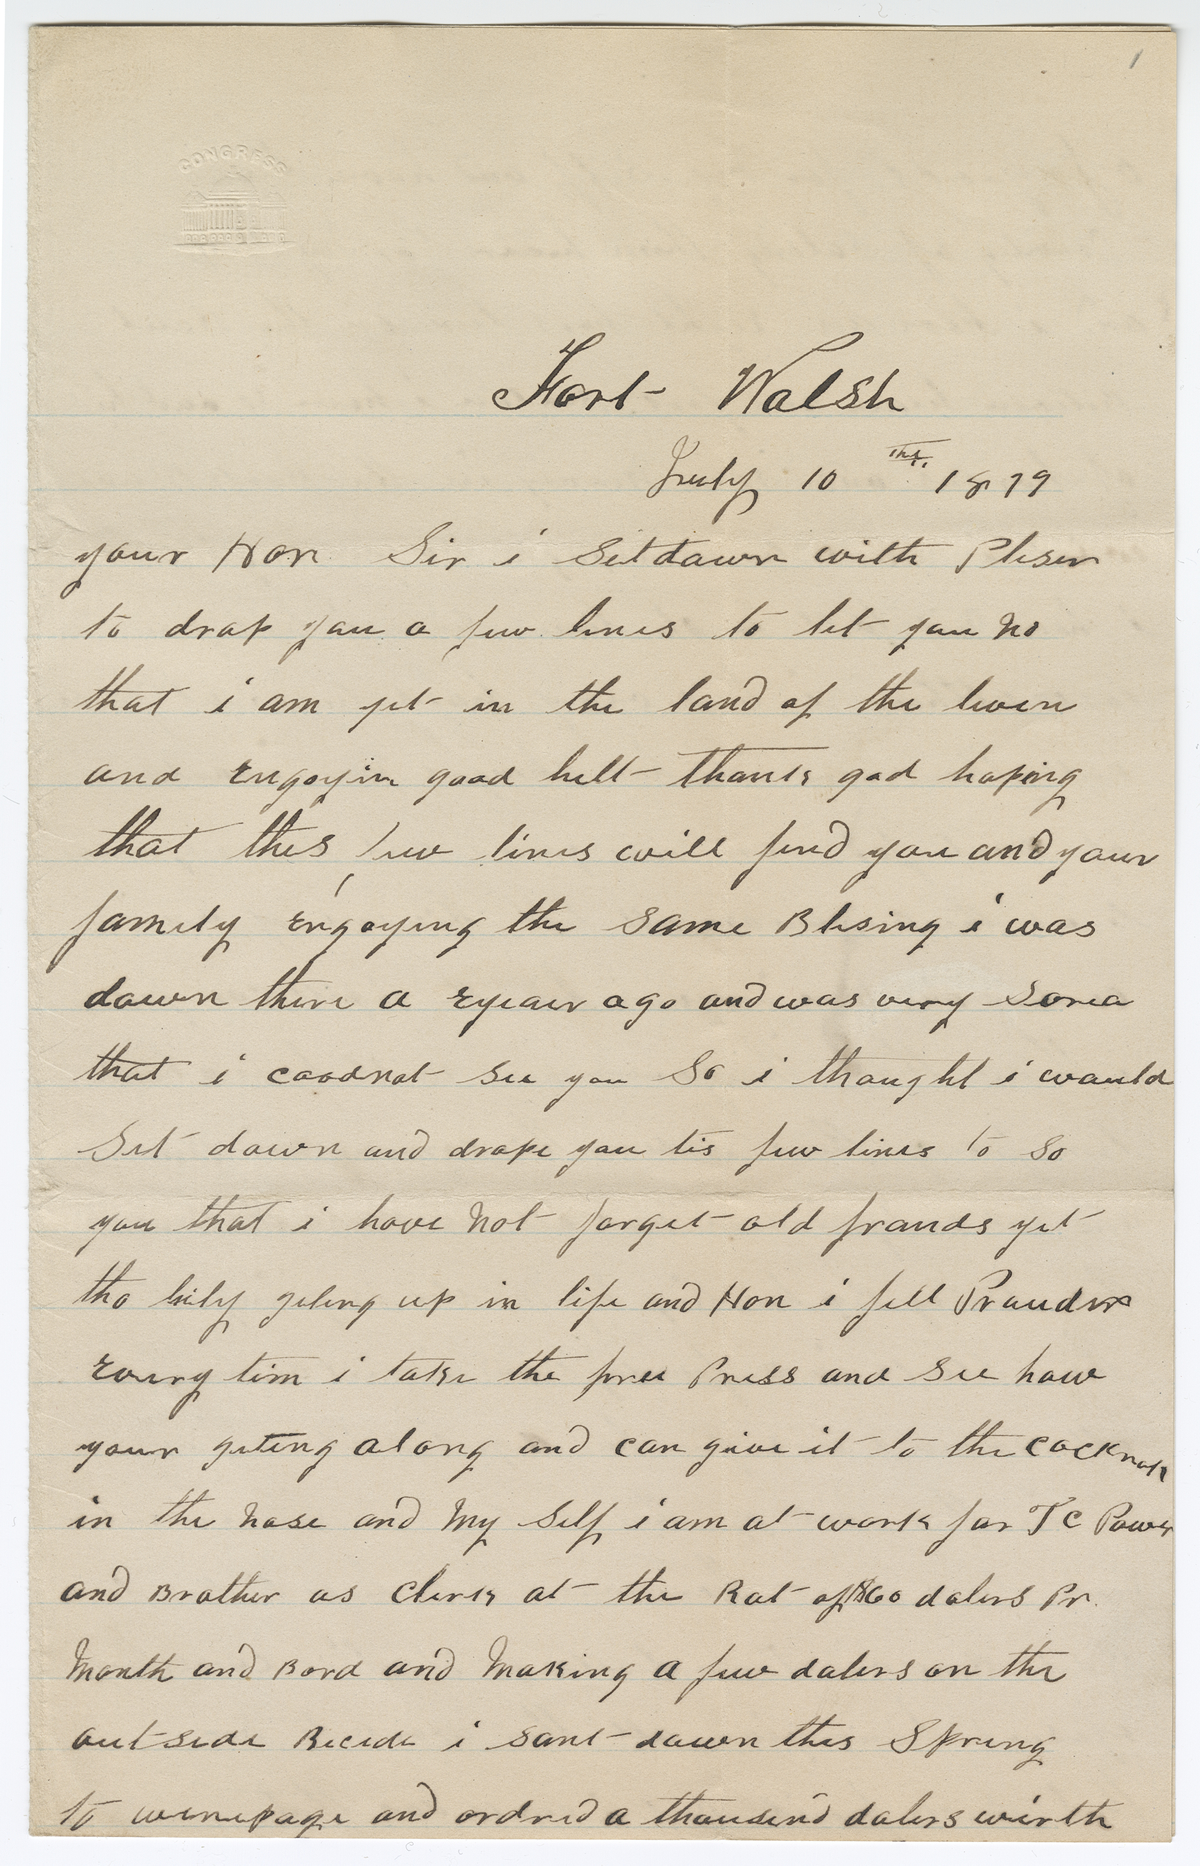 1
CONGRESS
Fort Walsh
July 10 th. 1879
your Hon Sir i Setdown with Pleser
to drop you a few lines to let you no
that i am yet in the land of the leven
and Engoyin good helt thanks god hoping
that thes few lines will find you and your
family Engoying the Same Blesing i was
down there a Eyear ago and was very Sorea
that i coodnot See you So i thought i would
Set down and drope you tis few lines to So
you that i have not forget old frands yet
tho geting up in life and Hon i fell Prouder
Evrey tim i take the free Press and See how
your geting along and can give it to the
in the nose and My Self i am at work for T C Power
and Brother as Clerk at the Rat of $60 dalers Pr.
Month and Bord and Making a few dalers on the
outside Becide i sent down this Spring
to winepage and ordred a thousend dalers wirth